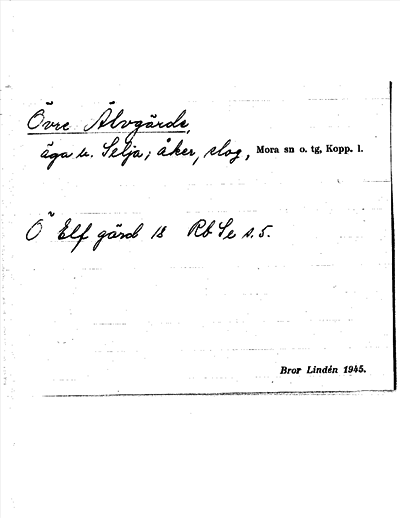 Övre Älvgärde,
äga u. Selja; åker, slog, Mora sn o. tg, Kopp. l.
Ö Elf gärd 18 Rb Se s. 5.
Bror Lindén 1945.